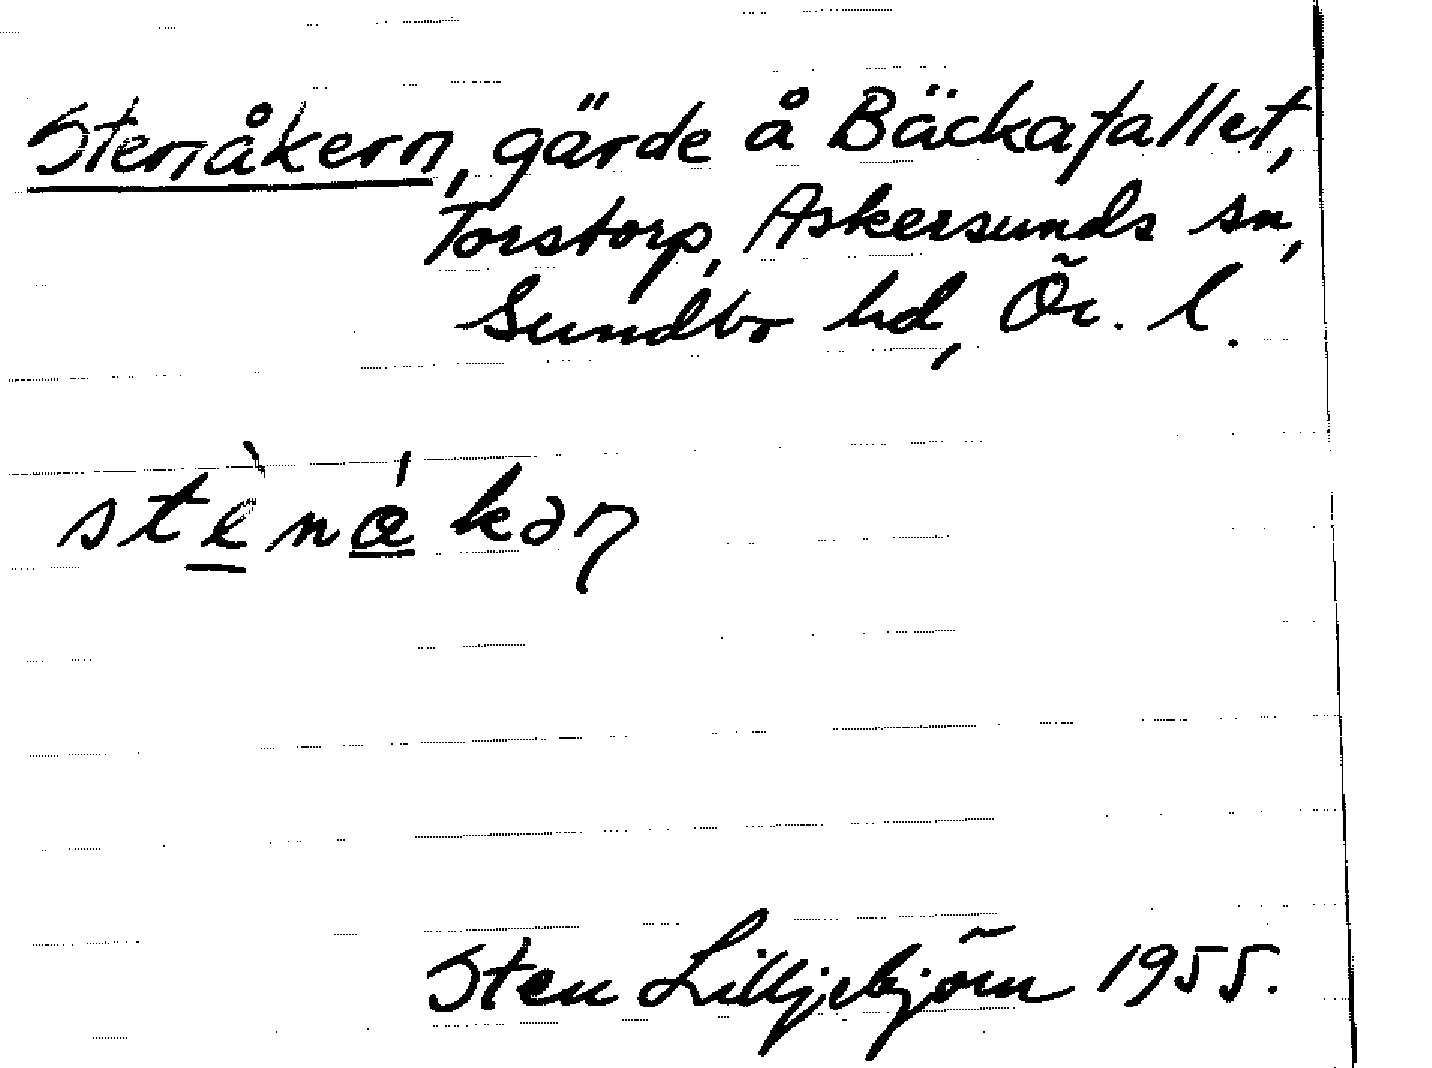 Stenåkern, gärde å Bäckafallet,
Torstorp, Askersunds sn,
Sundbo hd, Ör. l.
stènákəɲ
Sten Lilljebjörn 1955.